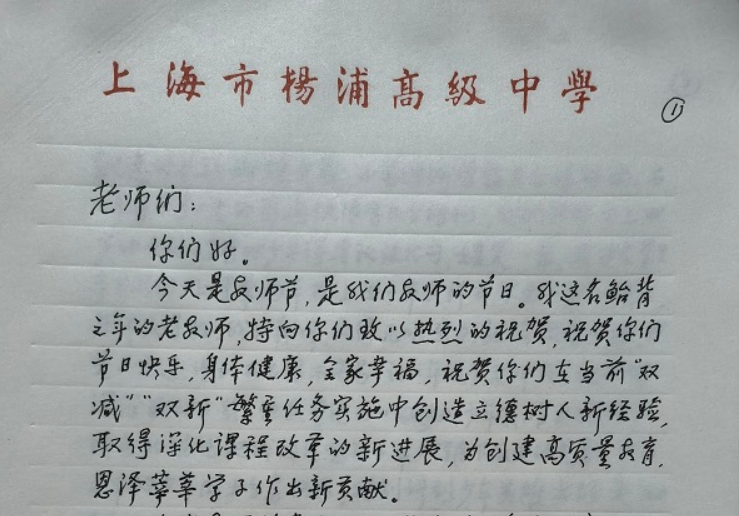 上海市楊浦高級中學
①
老师们:
你们好。
今天是教师节,是我们教师的节日。我这名鲐背
之年的老教师,特向你们致以热烈的祝贺,祝贺你们
节日快乐,身体健康,全家幸福,祝贺你们在当前“双
减”“双新”繁重任务实施中创造立德树人新经验,
取得深化课程改革的新进展,为创建高质量教育,
恩泽莘莘学子作出新贡献。